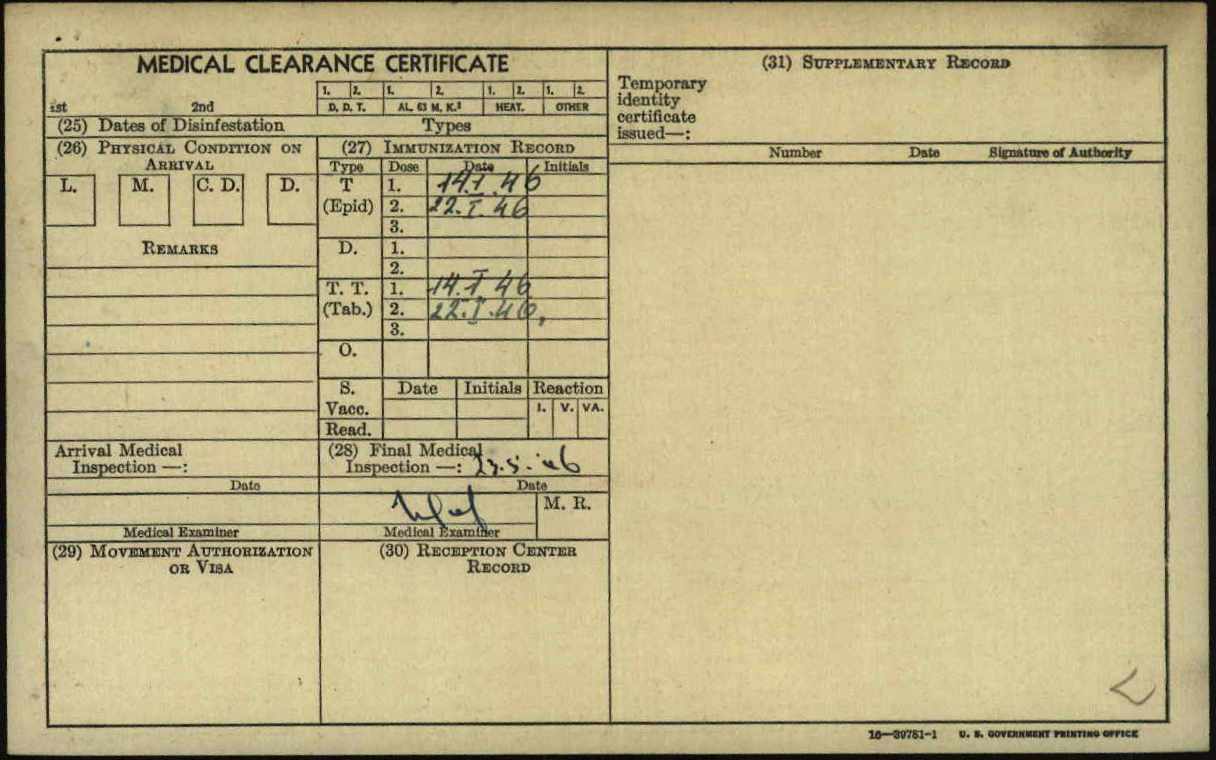 MEDICAL CLEARANCE CERTIFICATE
1. 2. 1. 2. 1. 2. 1. 2.
1st 2nd D. D. T. AL. 63 M. K.³ HEAT. OTHER
(25) Dates of Disinfestation Types
(26) PHYSICAL CONDITION ON
ARRIVAL
L. M. C. D. D.
REMARKS
Arrival Medical
Inspection —:
Date
Medical Examiner
(27) IMMUNIZATION RECORD
Type Dose Date Initials
T 1. 14.I.46
(Epid) 2. 22.I.46
3.
D. 1.
2.
T. T. 1. 14.I.46
(Tab.) 2. 22.I.46,
3.
O.
S. Date Initials Reaction
Vacc. I. V. VA.
Read.
(28) Final Medical
Inspection —: 23.5.46
Date
M. R.
Medical Examiner
(29) MOVEMENT AUTHORIZATION
OR VISA
(30) RECEPTION CENTER
RECORD
(31) SUPPLEMENTARY RECORD
Temporary
identity
certificate
issued—:
Number Date Signature of Authority
16—39781-1 U. S. GOVERNMENT PRINTING OFFICE